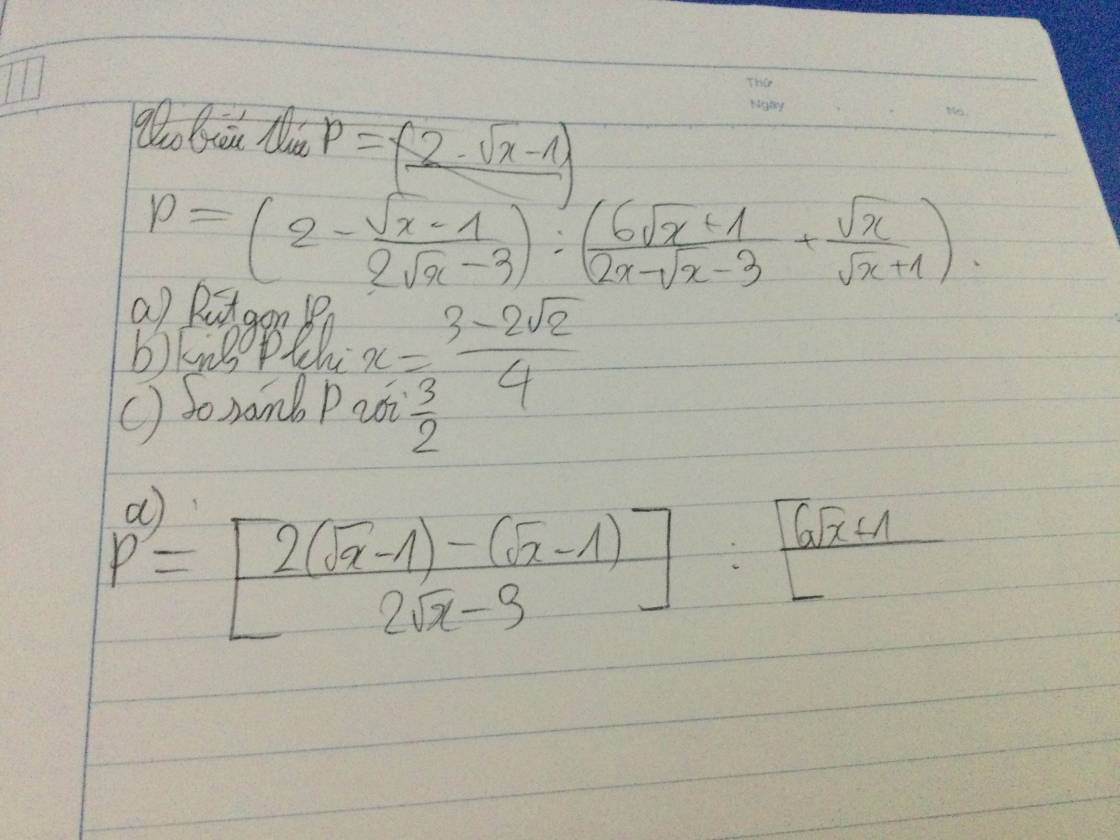 Thứ
Ngày . . No.
Cho biểu thức P = (2 - √x - 1)
P = (2 - (√x - 1)/(2√x - 3)) : ((6√x + 1)/(2x - √x - 3) + √x/(√x + 1)).
a) Rút gọn P
b) Tính P khi x = (3 - 2√2)/4
c) So sánh P với 3/2
a)
P = [(2(√x - 1) - (√x - 1))/(2√x - 3)] : [6√x + 1